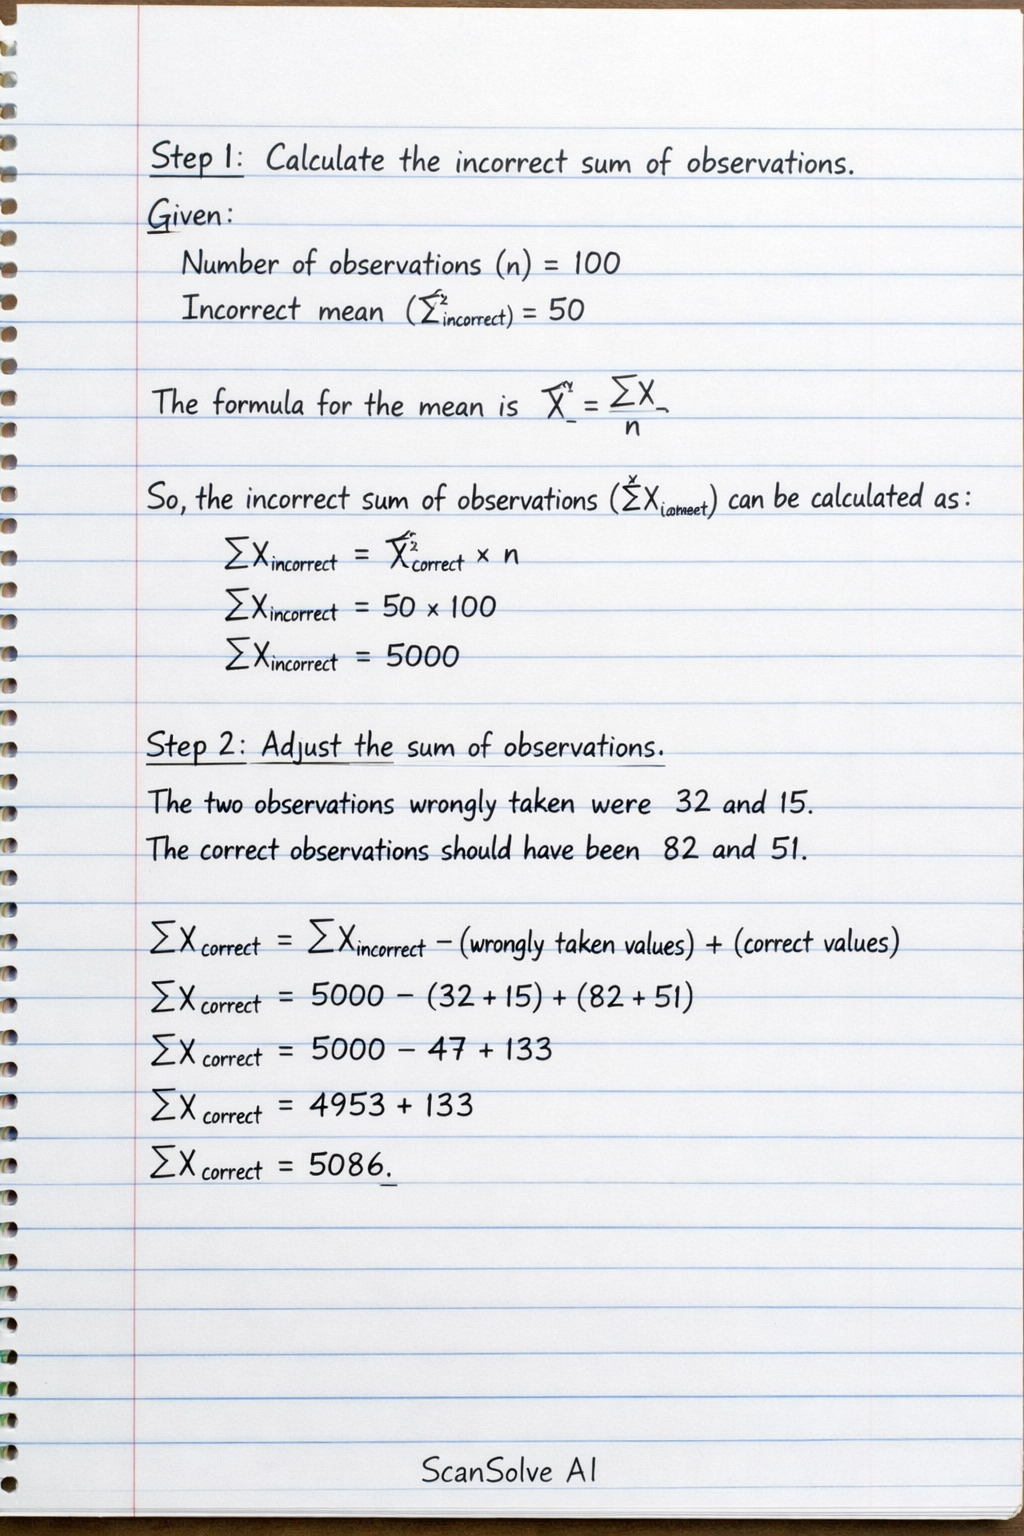 Step 1: Calculate the incorrect sum of observations.
Given:
Number of observations (n) = 100
Incorrect mean (Σ²incorrect) = 50
The formula for the mean is X̄ = ΣX / n
So, the incorrect sum of observations (ΣX) can be calculated as:
ΣXincorrect = X̄²correct × n
ΣXincorrect = 50 × 100
ΣXincorrect = 5000
Step 2: Adjust the sum of observations.
The two observations wrongly taken were 32 and 15.
The correct observations should have been 82 and 51.
ΣXcorrect = ΣXincorrect – (wrongly taken values) + (correct values)
ΣXcorrect = 5000 – (32 + 15) + (82 + 51)
ΣXcorrect = 5000 – 47 + 133
ΣXcorrect = 4953 + 133
ΣXcorrect = 5086.
ScanSolve AI